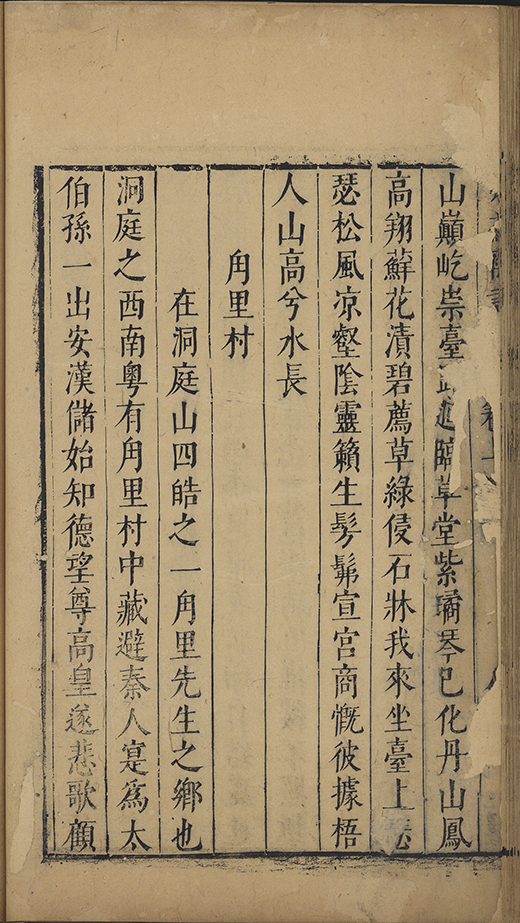 山巔屹崇臺臨草堂紫璚琴已化丹山鳳
高翔蘚花漬碧薦草綠侵石牀我來坐臺上
瑟松風凉壑陰靈籟生髣髴宣宮商慨彼據梧
人山高兮水長
甪里村
在洞庭山四皓之一甪里先生之鄉也
洞庭之西南粵有甪里村中藏避秦人寔為太
伯孫一出安漢儲始知德望尊高皇遂悲歌顧